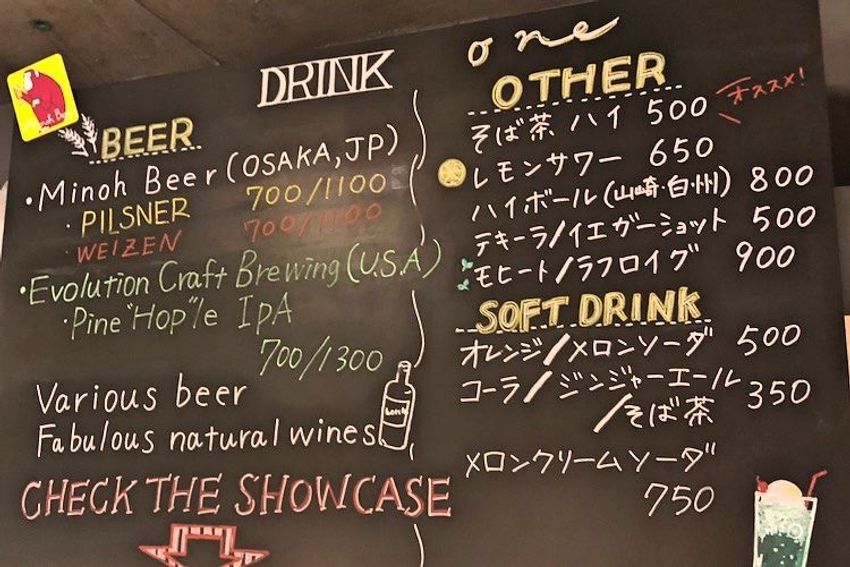 one
DRINK
BEER
・Minoh Beer (OSAKA, JP)
・PILSNER 700/1100
・WEIZEN 700/1100
・Evolution Craft Brewing (U.S.A)
・Pine "Hop"le IpA
700/1300
Various beer
Fabulous natural wines
CHECK THE SHOWCASE
OTHER
そば茶 ハイ 500 オススメ!
レモンサワー 650
ハイボール(山崎・白州) 800
テキーラ/イエガーショット 500
モヒート/ラフロイグ 900
SOFT DRINK
オレンジ/メロンソーダ 500
コーラ/ジンジャーエール 350
/そば茶
メロンクリームソーダ
750